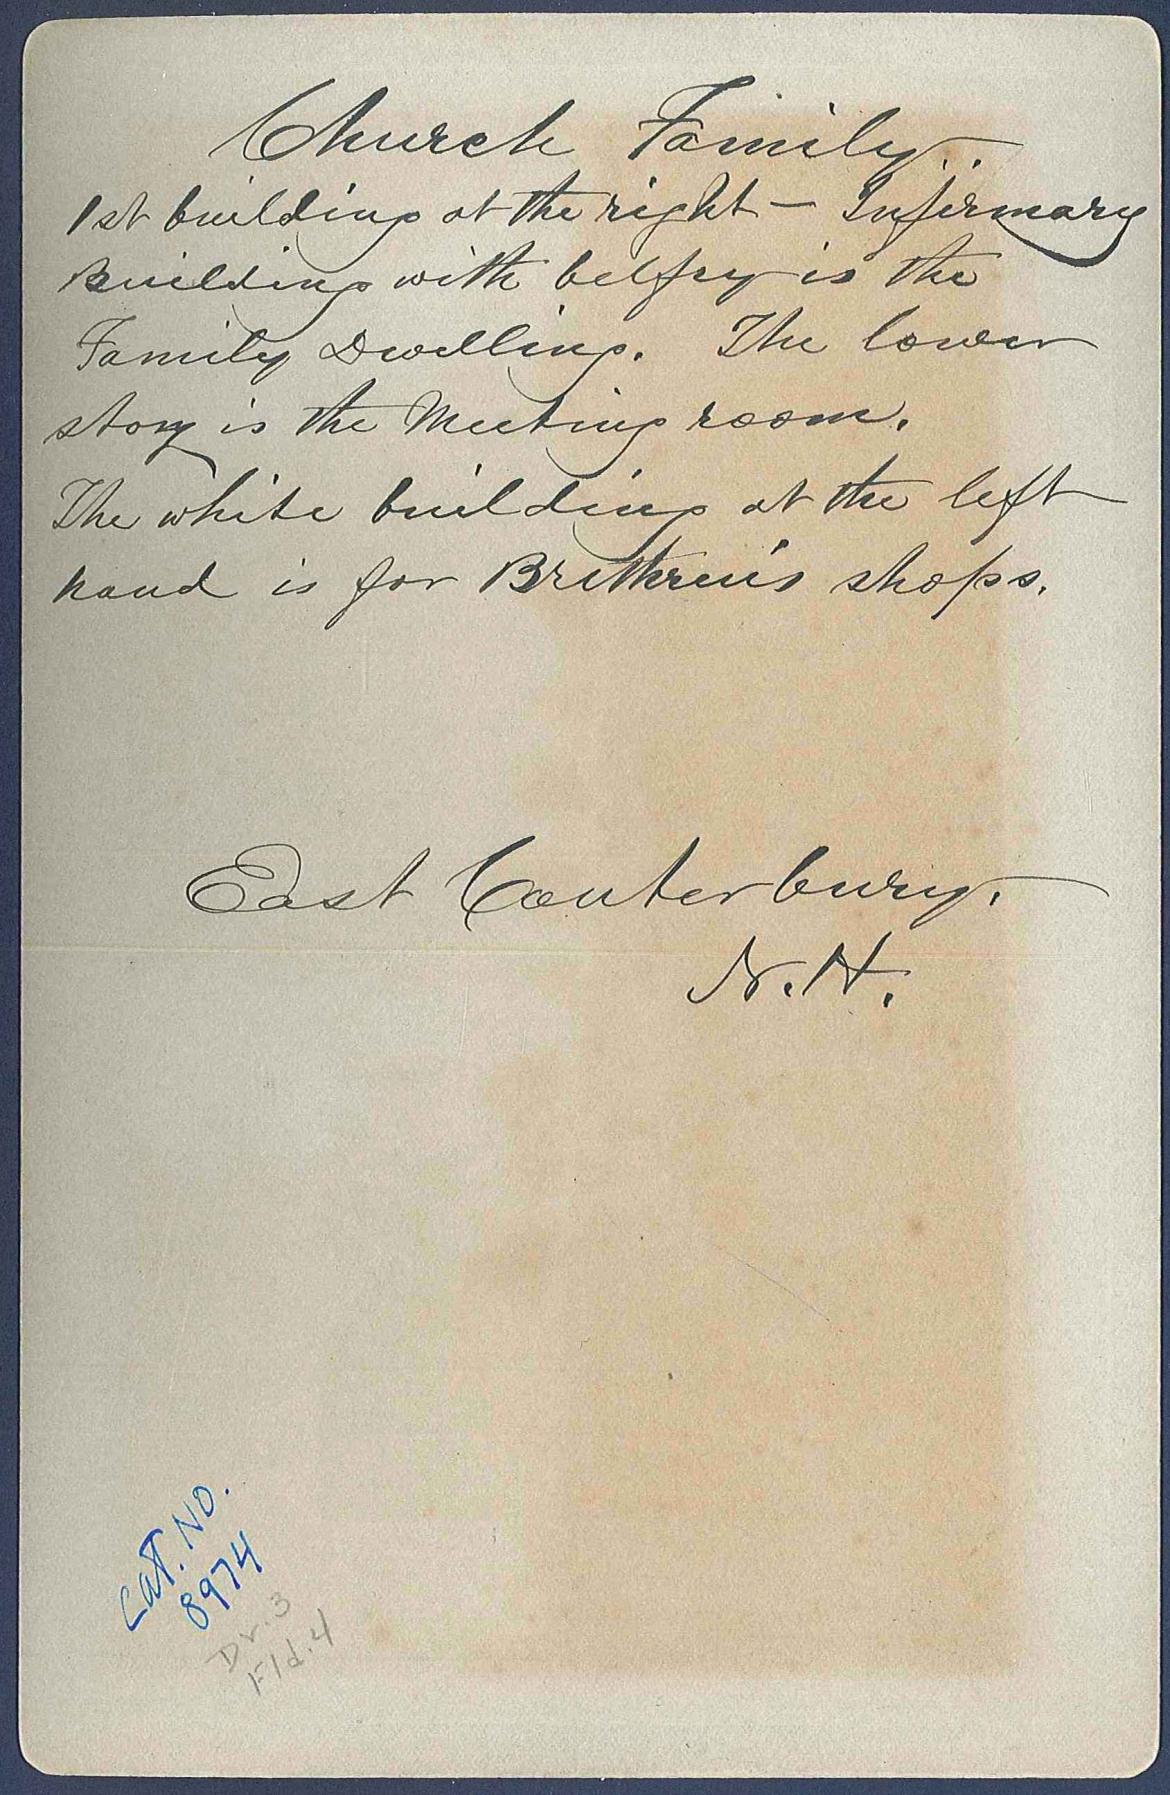 Church Family.
1st building at the right – Infirmary
Building with belfry is the
Family Dwelling. The lower
story is the Meeting room.
The white building at the left
hand is for Brethren's shops.
East Canterbury.
N.H.
Cat. No.
8974
Dr. 3
Fld. 4